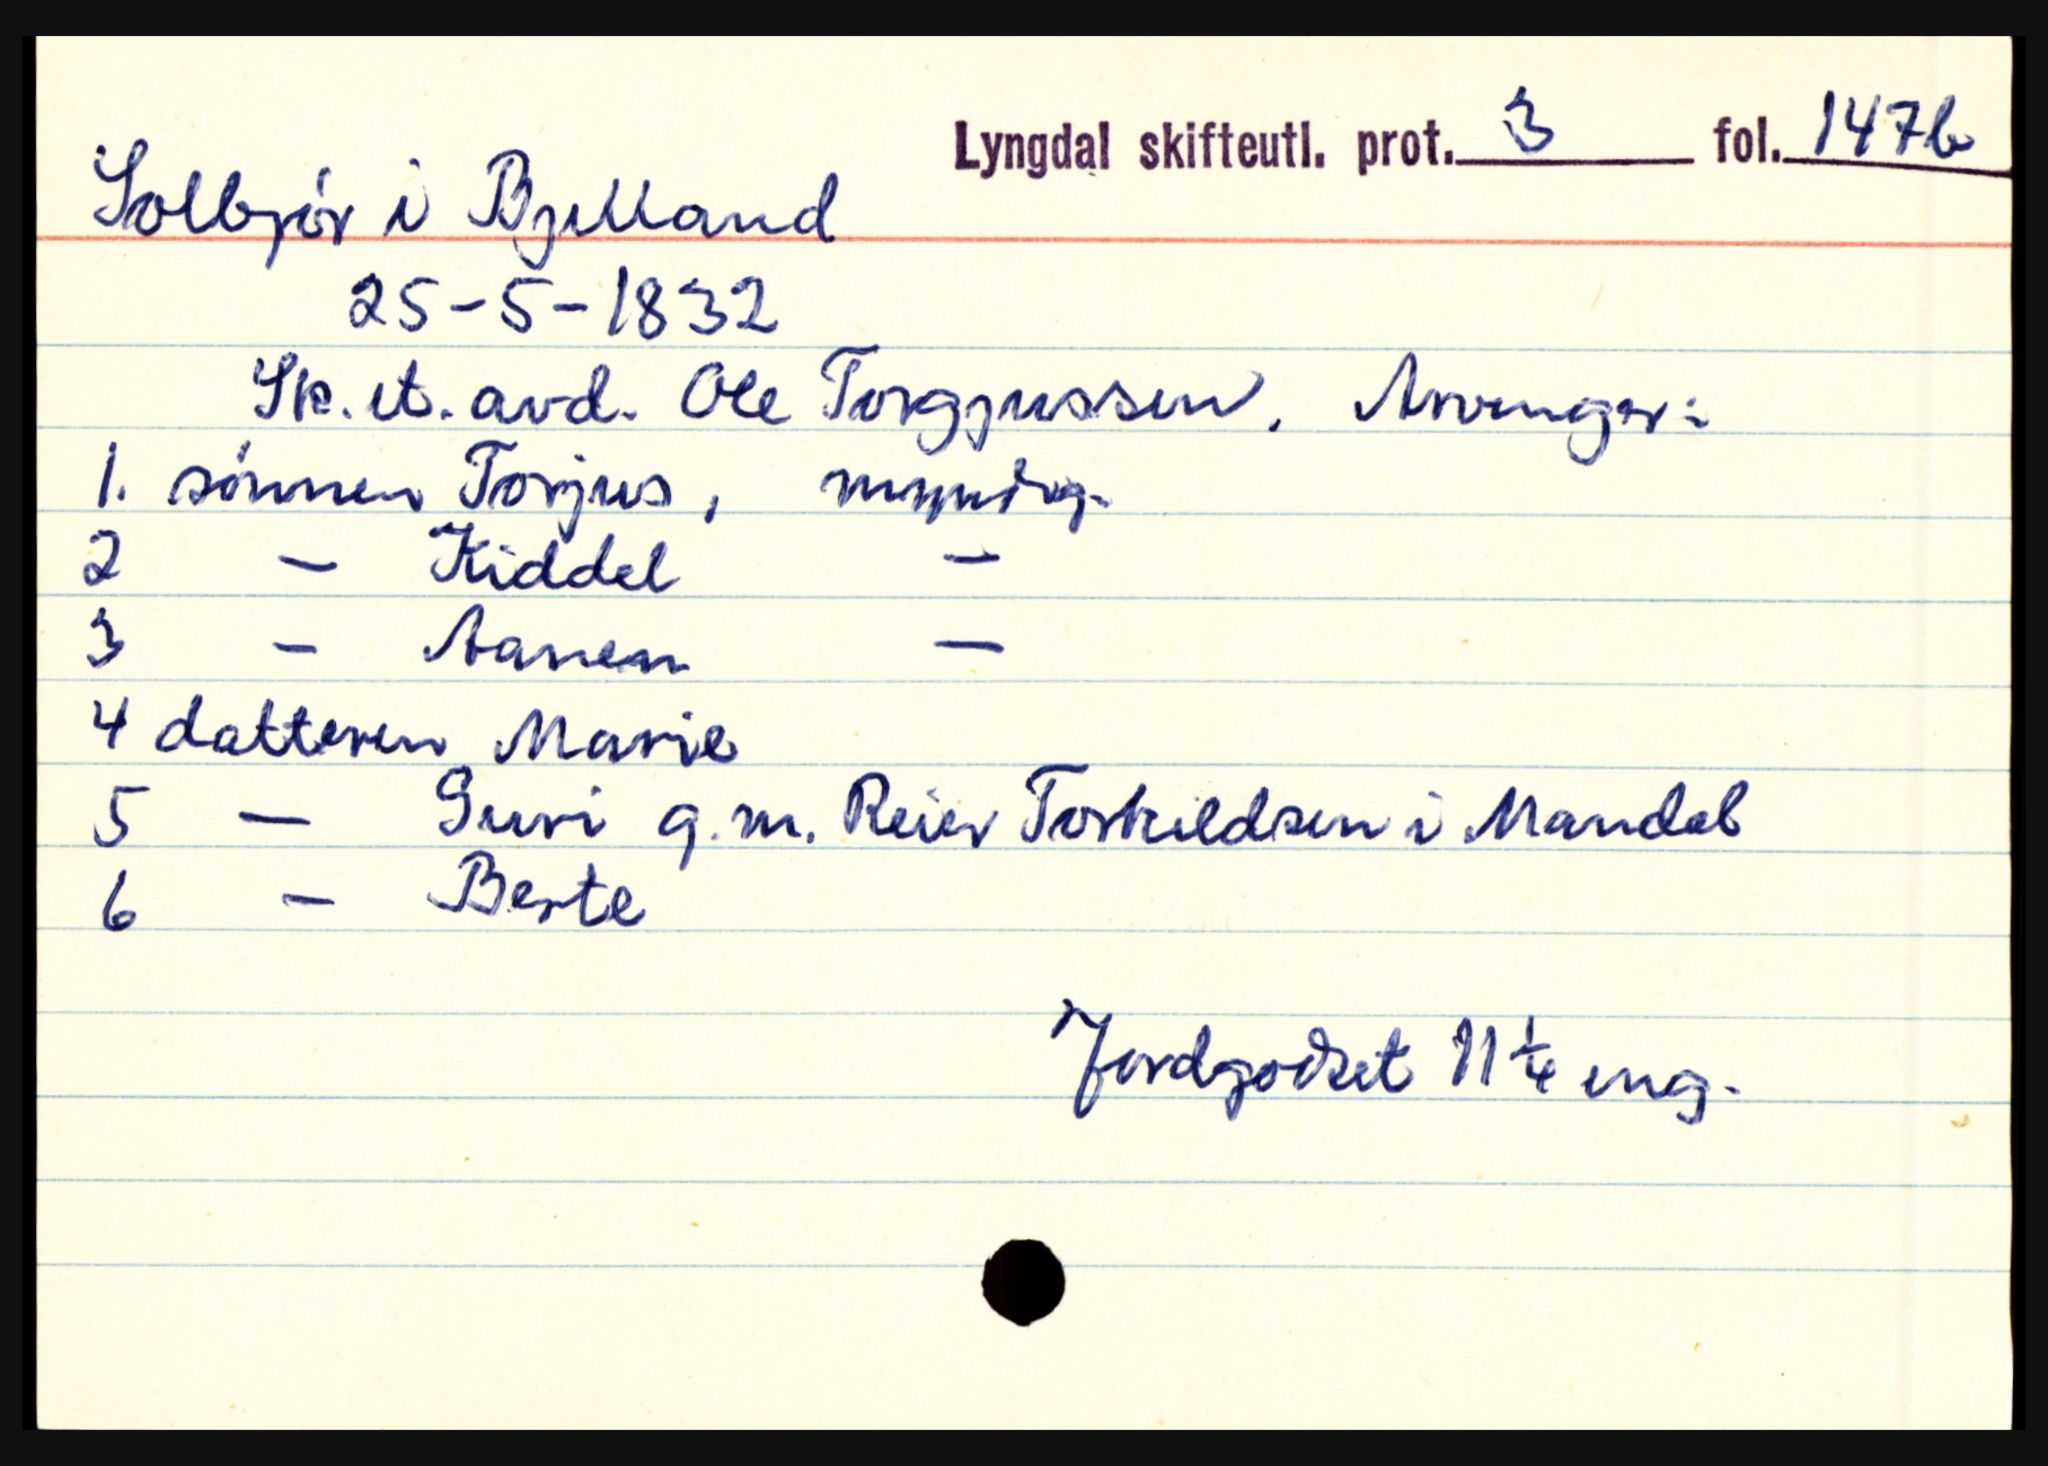 Lyngdal skifteutl. prot. 3 fol. 147b
Solbjør i Bjelland
25-5-1832
Sk. et. avd. Ole Torgjussen. Arvinger:
1. sønnen Torjus, myndig.
2 - Kiddel -
3 - Aanen -
4 datteren Marie
5 - Guri g.m. Reier Torkildsen i Mandal
6 - Berte
Jordgodset 11 1/4 eng.